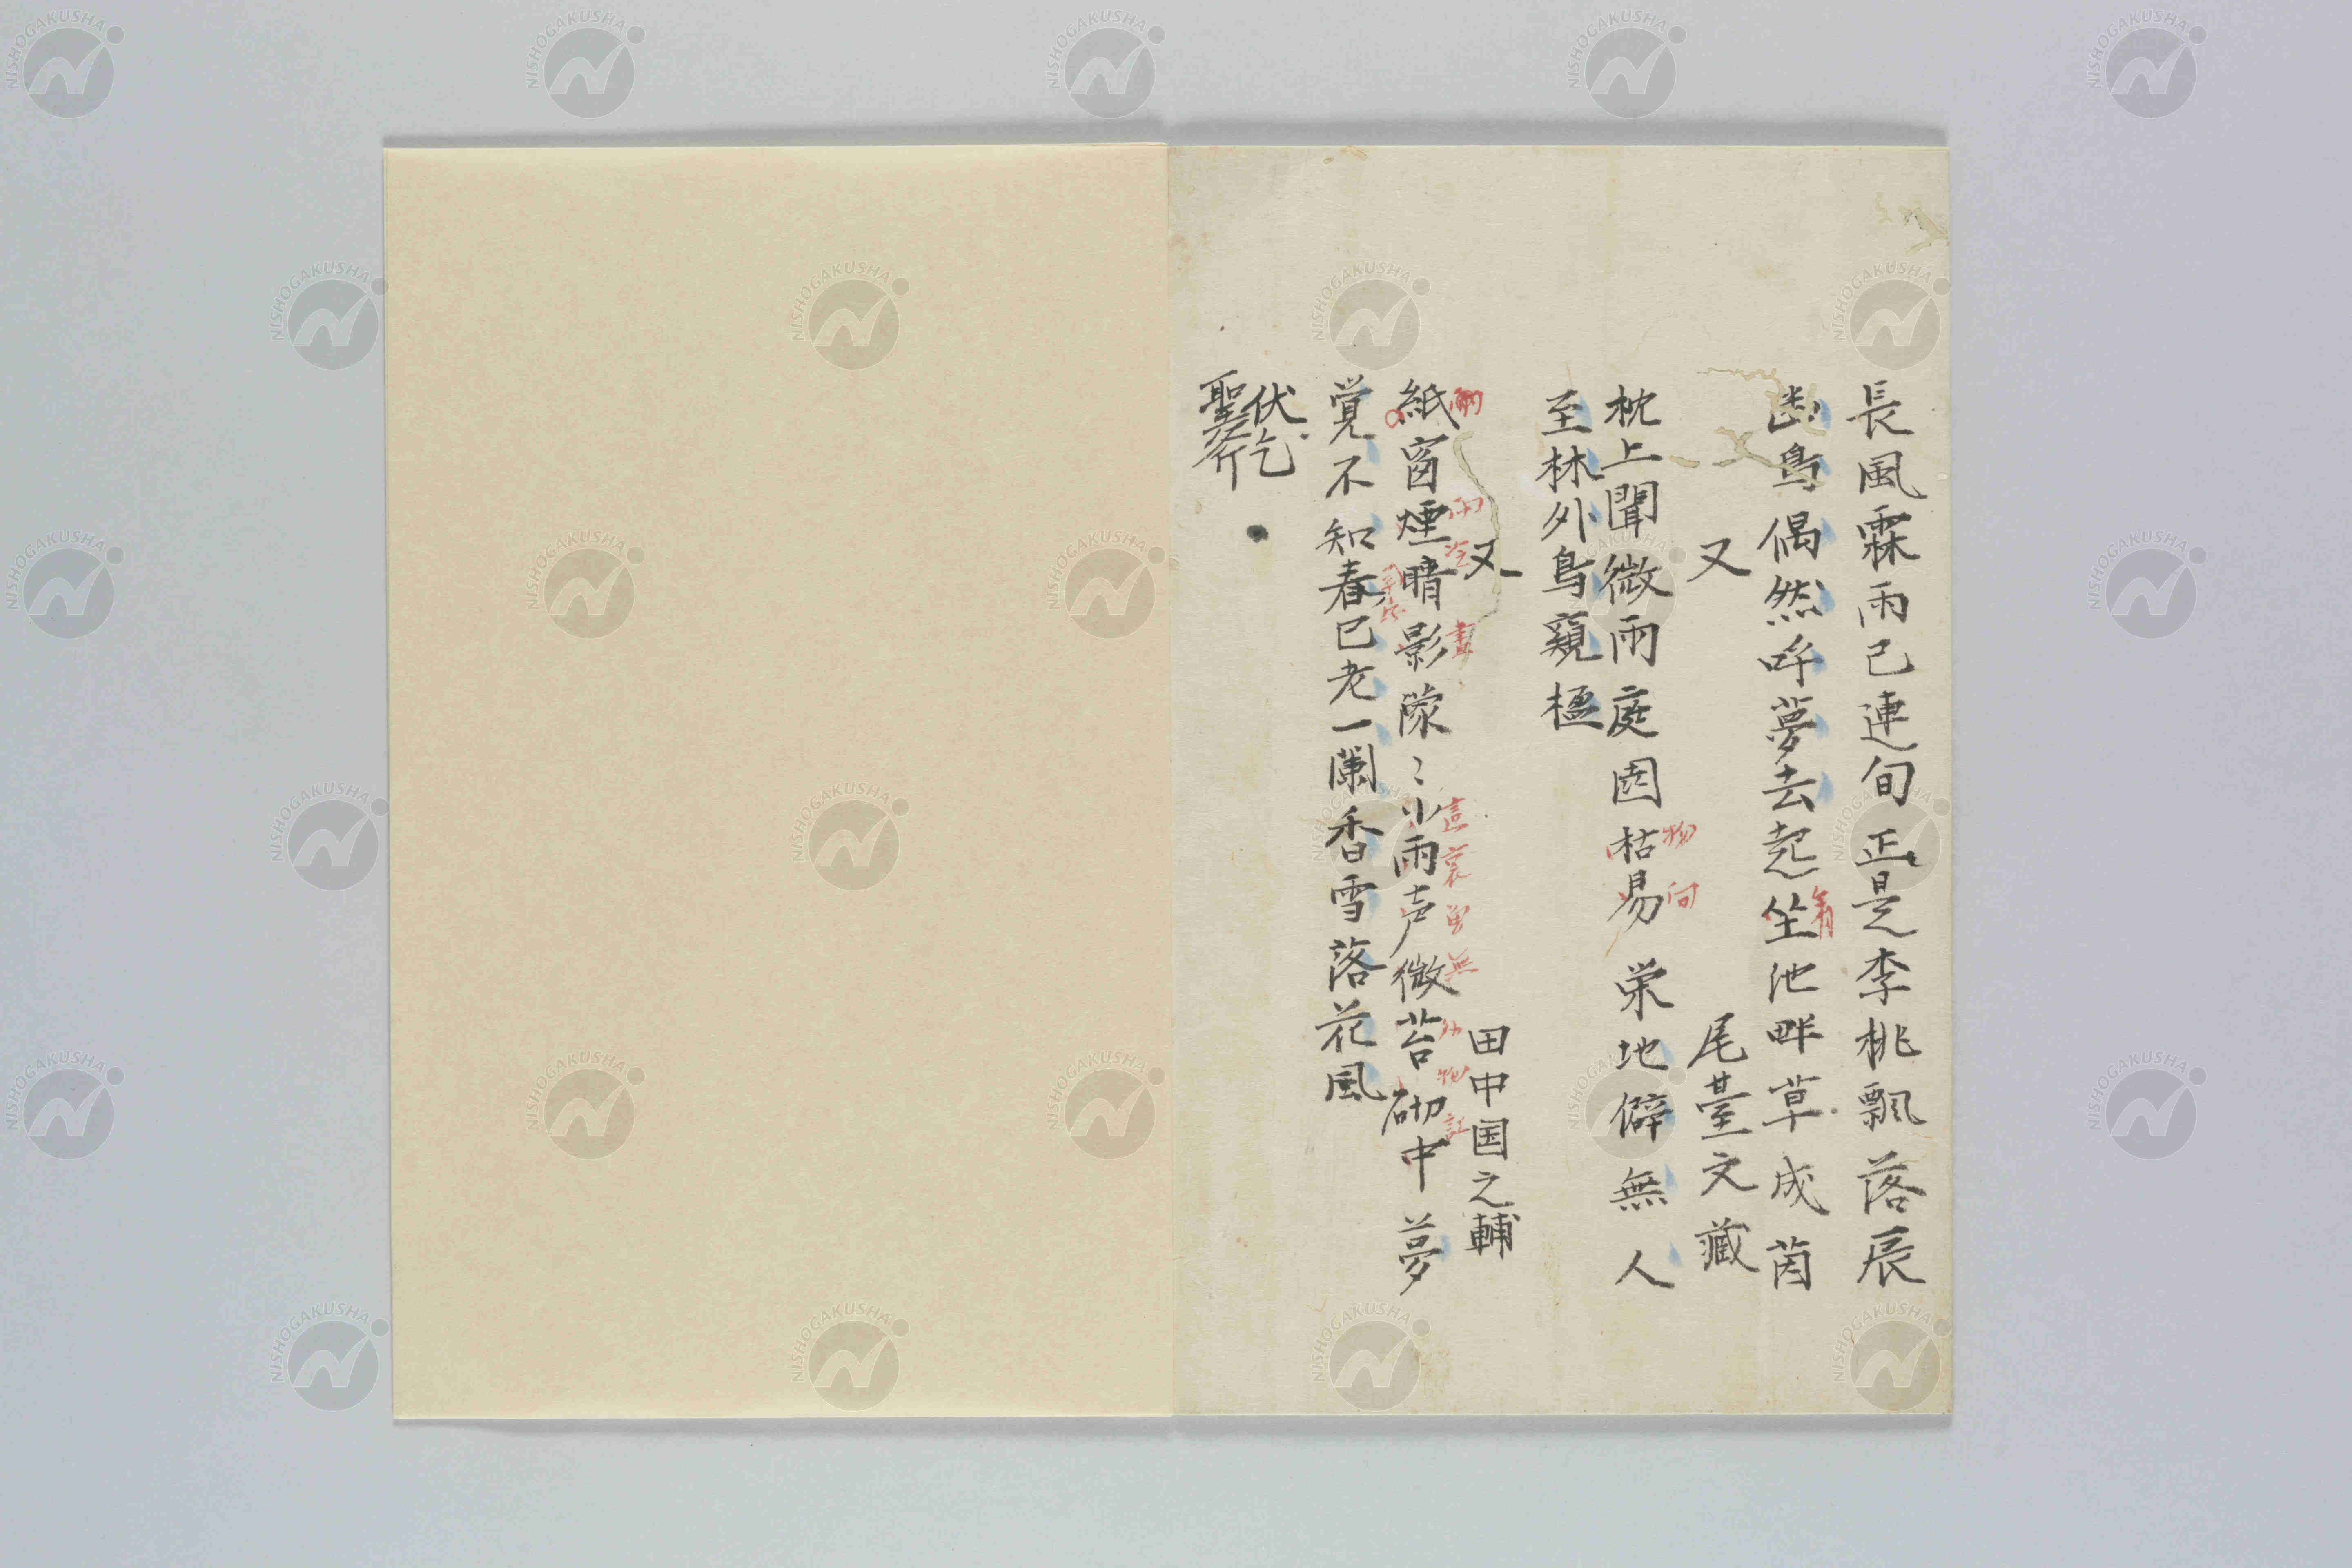 長風霖雨已連旬正是李桃飄落辰
幽鳥偶然呼夢去起坐池畔草成茵
又 尾臺文藏
枕上聞微雨庭園枯易栄地僻無人
至林外鳥窺楹
又 田中国之輔
紙窗煙暗影濛〻小雨声微苔砌中夢
覚不知春已老一闌香雪落花風
伏乞
聖斧
物
向
畫
這裏
無
NISHOGAKUSHA